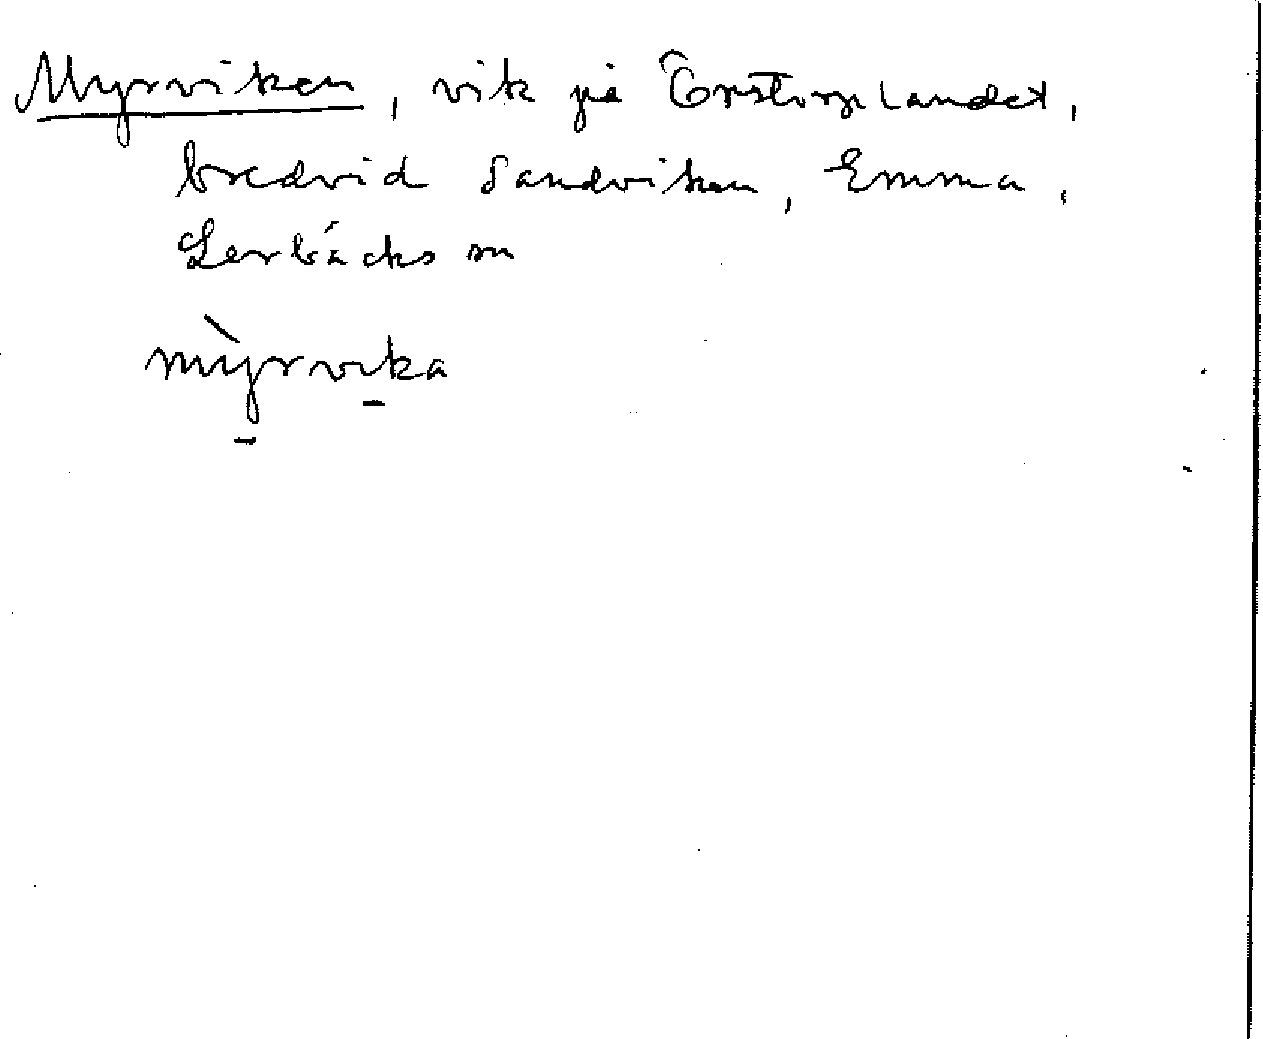 Myrviken, vik på Örstorplandet,
bredvid Sandviken, Emma,
Lerbäcks sn
mỳrvika